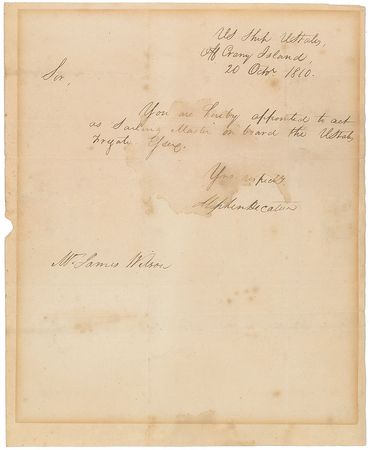 US Ship UStates,
Off Crany Island,
20 Octr 1810.
Sir,
You are hereby appointed to act
as Sailing Master on board the UStates
Frigate Essex.
Yrs respecty
Stephen Decatur
Mr. James Wilson